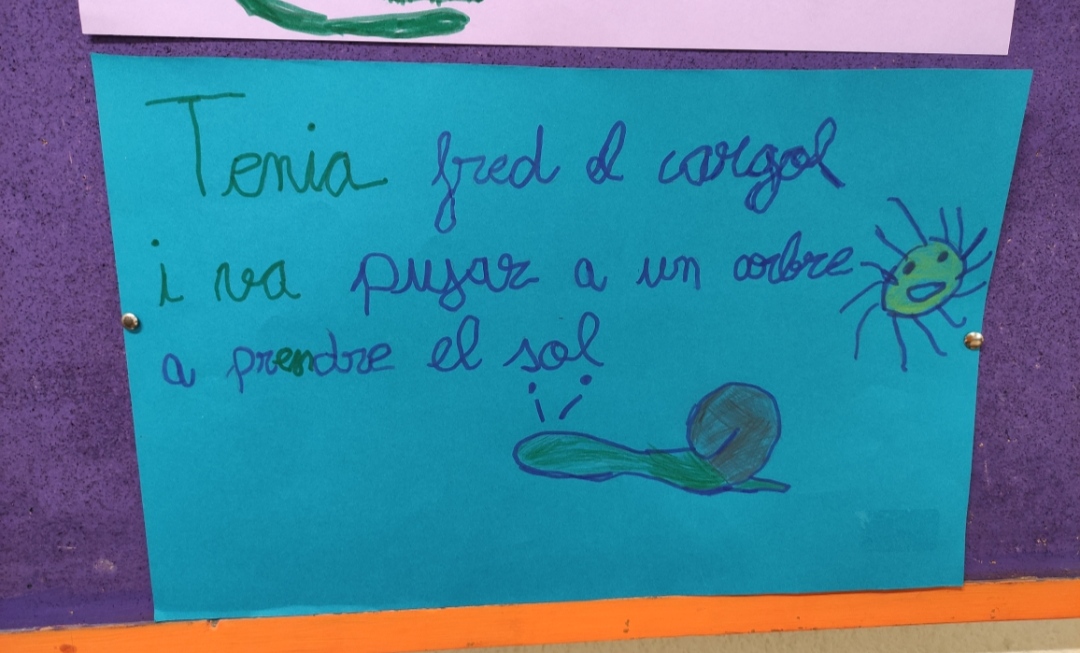 Tenia fred el cargol
i va pujar a un arbre
a prendre el sol